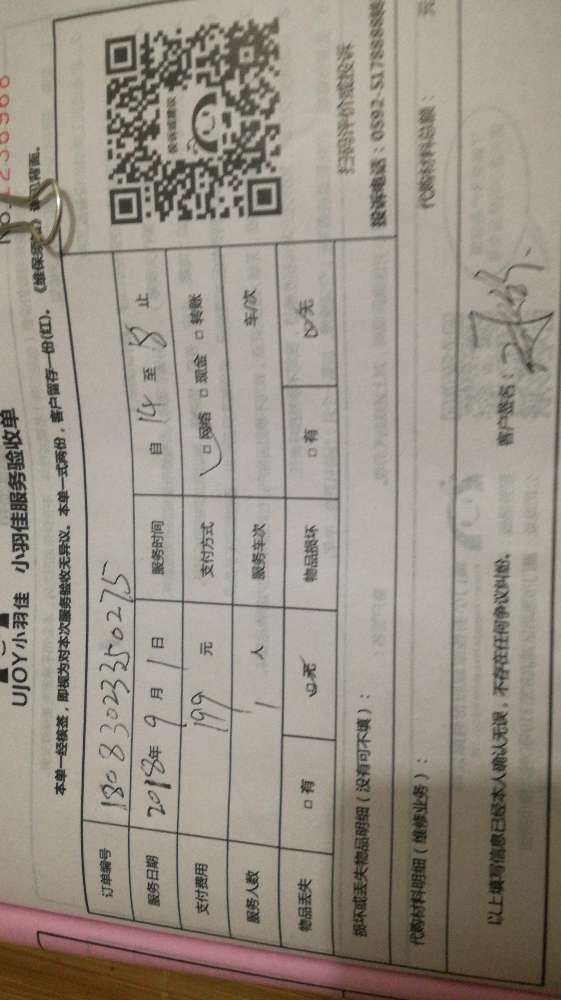 UJOY小羽佳 小羽佳服务验收单
本单一经核签，即视为对本次服务验收无异议。本单一式两份，客户留存一份(红)。
订单编号 18083023350275
服务日期 2018年9月1日 服务时间 自 14 至 18 止
支付费用 199 元 支付方式 □网络 □现金 □转账
服务人数 1 人 服务车次 车/次
物品丢失 □有 □无 物品损坏 □有 □无
投诉或建议
扫码评价或投诉
投诉电话：0592-5178888
损坏或丢失物品明细（没有可不填）：
代购材料明细（维修业务）： 代购材料总额： 元
以上填写信息已经本人确认无误，不存在任何争议纠纷。 客户签名：